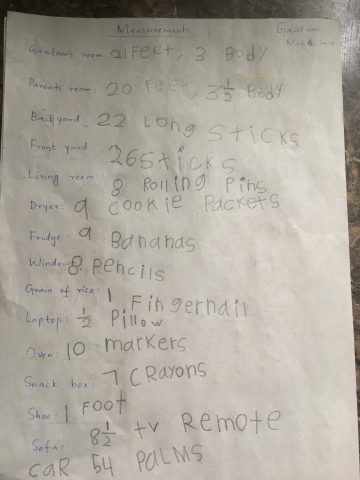 Measurements
Gautam
May 6,
Gautam's room 21 Feet, 3 Body
Parents room: 20 Feet, 3 1/2 Body
Back yard: 22 Long Sticks
Front yard: 26 Sticks
Living room 8 Rolling Pins
Dryer: 9 Cookie Packets
Fridge: 9 Bananas
Window: 8 pencils
Grain of rice: 1 Fingernail
Laptop: 1/2 Pillow
Oven: 10 markers
Snack box: 7 CRayons
Shoe: 1 FOOT
Sofa: 8 1/2 tv Remote
CaR 54 PaLMS